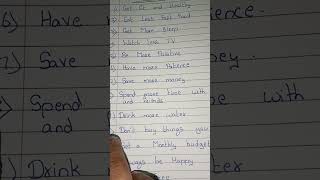 Get Fit and Healthy
Eat Less Fast Food
Get More Sleep
Watch Less TV
Be More Positive
Have more Patience
Save more money
Spend more time with
and friends
Drink more water
Don't buy things you
Set a Monthly budget
Always be Happy
6) Have
7) Save
Spend
and
) Drink
ience.
ney
be with
ter